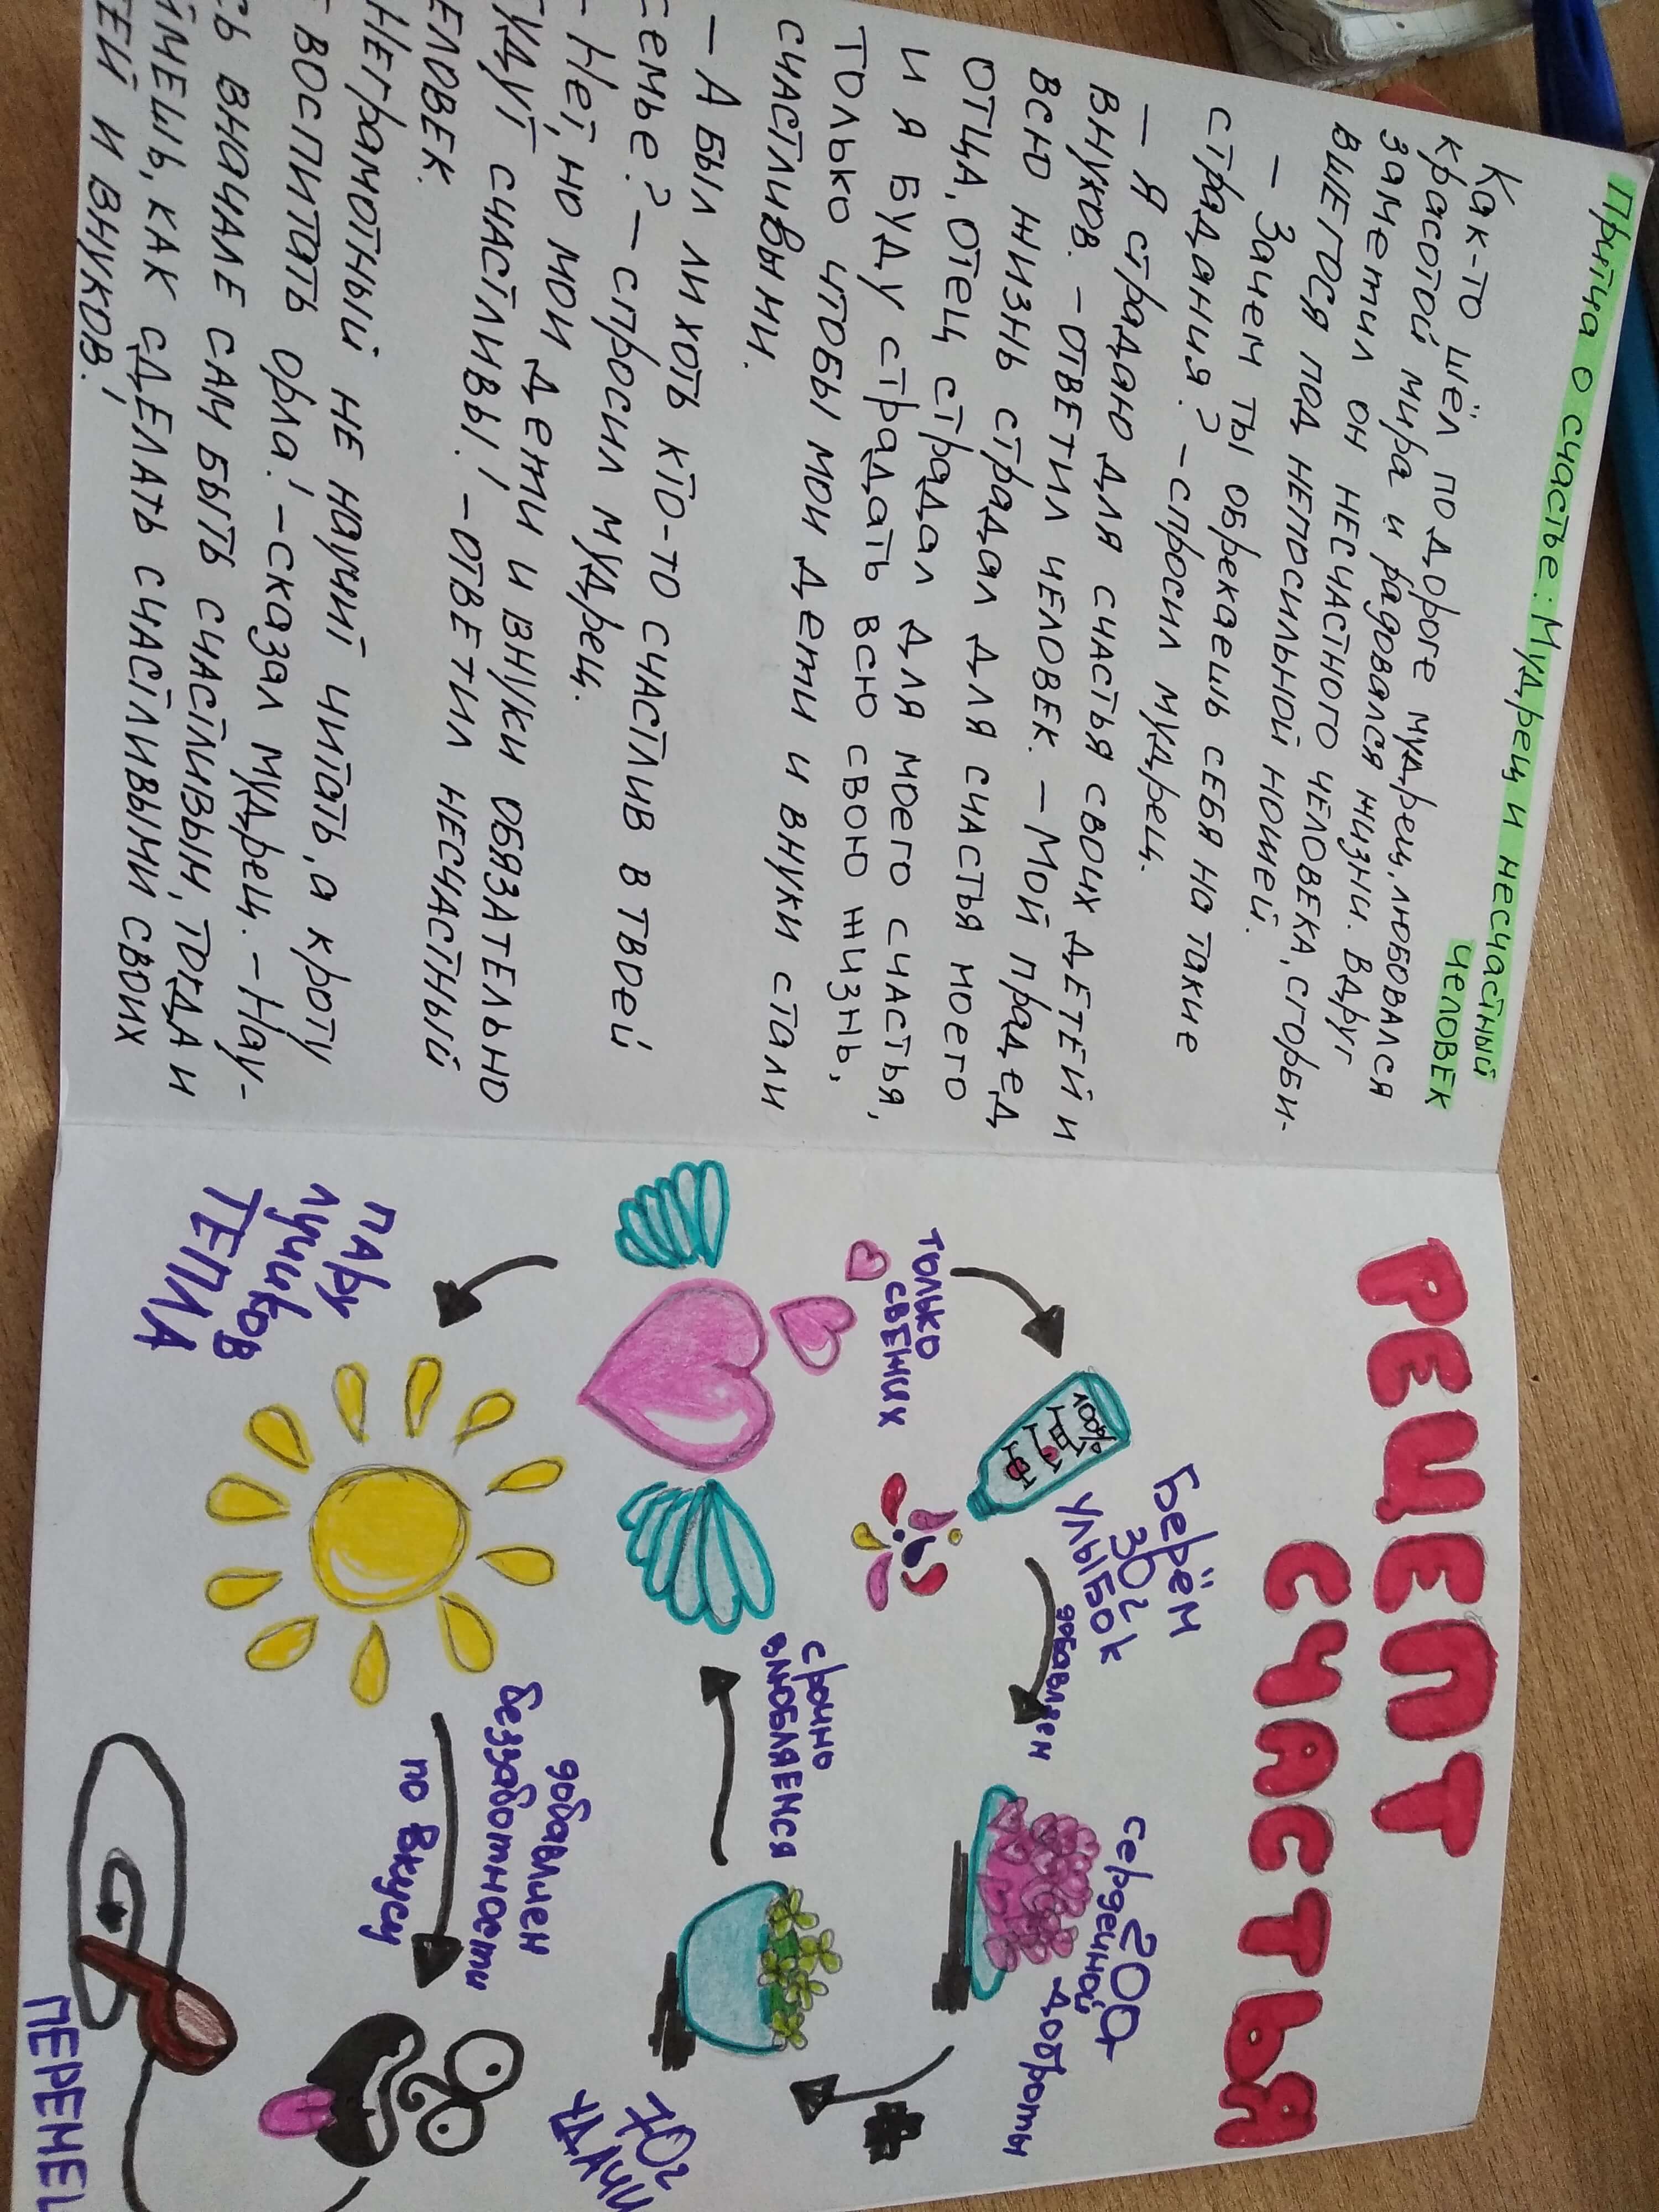 Притча о счастье: Мудрец и несчастный
человек
Как-то шёл по дороге мудрец, любовался
красотой мира и радовался жизни. Вдруг
заметил он несчастного человека, сгорби-
вшегося под непосильной ношей.
– Зачем ты обрекаешь себя на такие
страдания? – спросил мудрец.
– Я страдаю для счастья своих детей и
внуков. – ответил человек. – Мой прадед
всю жизнь страдал для счастья моего
отца, отец страдал для моего счастья,
и я буду страдать всю свою жизнь,
только чтобы мои дети и внуки стали
счастливыми.
– А был ли хоть кто-то счастлив в твоей
семье? – спросил мудрец.
– Нет, но мои дети и внуки обязательно
будут счастливы! – ответил несчастный
человек.
Неграмотный не научит читать, а кроту
воспитать орла! – сказал мудрец. – Нау-
сь вначале сам быть счастливым, тогда и
ймешь, как сделать счастливыми своих
тей и внуков!
РЕЦЕПТ
СЧАСТЬЯ
Берём
30г
УЛЫБОК
100%
ТОЛЬКО
СВЕЖИХ
добавляем
200г
сердечной
доброты
20г
срочно
влюбляемся
пАру
лучиков
ТЕПЛА
добавляем
беззаботности
по вкусу
ПЕРЕМЕ